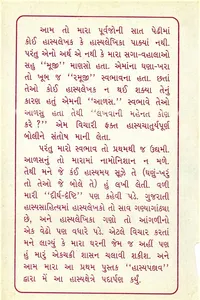 આમ તો મારા પૂર્વજોની સાત પેઢીમાં
કોઈ હાસ્યલેખક કે હાસ્યલેખિકા પાક્યાં નથી.
પરંતુ એનો અર્થ એ નથી કે મારા સગા-વ્હાલાઓ
સહુ "મૂજી" માણસો હતા. એમાંના ઘણા-ખરા
તો ખૂબ જ "રમૂજી" સ્વભાવના હતા. છતાં
તેઓ કોઈ હાસ્યલેખક ન થઈ શક્યા તેનું
કારણ હતું એમની "આળસ." સ્વભાવે તેઓ
આળસુ હતા તેથી "લખવાની મહેનત કોણ
કરે ?" એમ વિચારી ફક્ત હાસ્યચાતુર્યપૂર્ણ
બોલીને સંતોષ માની લેતા.
પરંતુ મારો સ્વભાવ તો પ્રથમથી જ ઉદ્યમી.
આળસનું તો મારામાં નામોનિશાન ન મળે.
તેથી મને જે કંઈ હાસ્યમય સૂઝે તે (ઘણું-ખરું
તો તેઓ જે બોલે તે) હું લખી લેતી. વળી
મારી "દીર્ઘ-દ્રષ્ટિ" પણ કહેવી પડે. ગુજરાતી
હાસ્યસાહિત્યમાં હાસ્યલેખકો તો સાવ ગણ્યાગાંઠ્યા
છે, અને હાસ્યલેખિકા ગણો તો આંગળીનો
એક વેઢો પણ વધારે પડે. એટલે વિચાર કરતાં
મને લાગ્યું કે મારા ઘરની જેમ જ અહીં પણ
હું મારું એકચક્રી શાસન ચલાવી શકીશ. અને
આમ મારા આ પ્રથમ પુસ્તક "હાસ્યપલવ"
દ્વારા મેં આ હાસ્યક્ષેત્રે પદાર્પણ કર્યું.